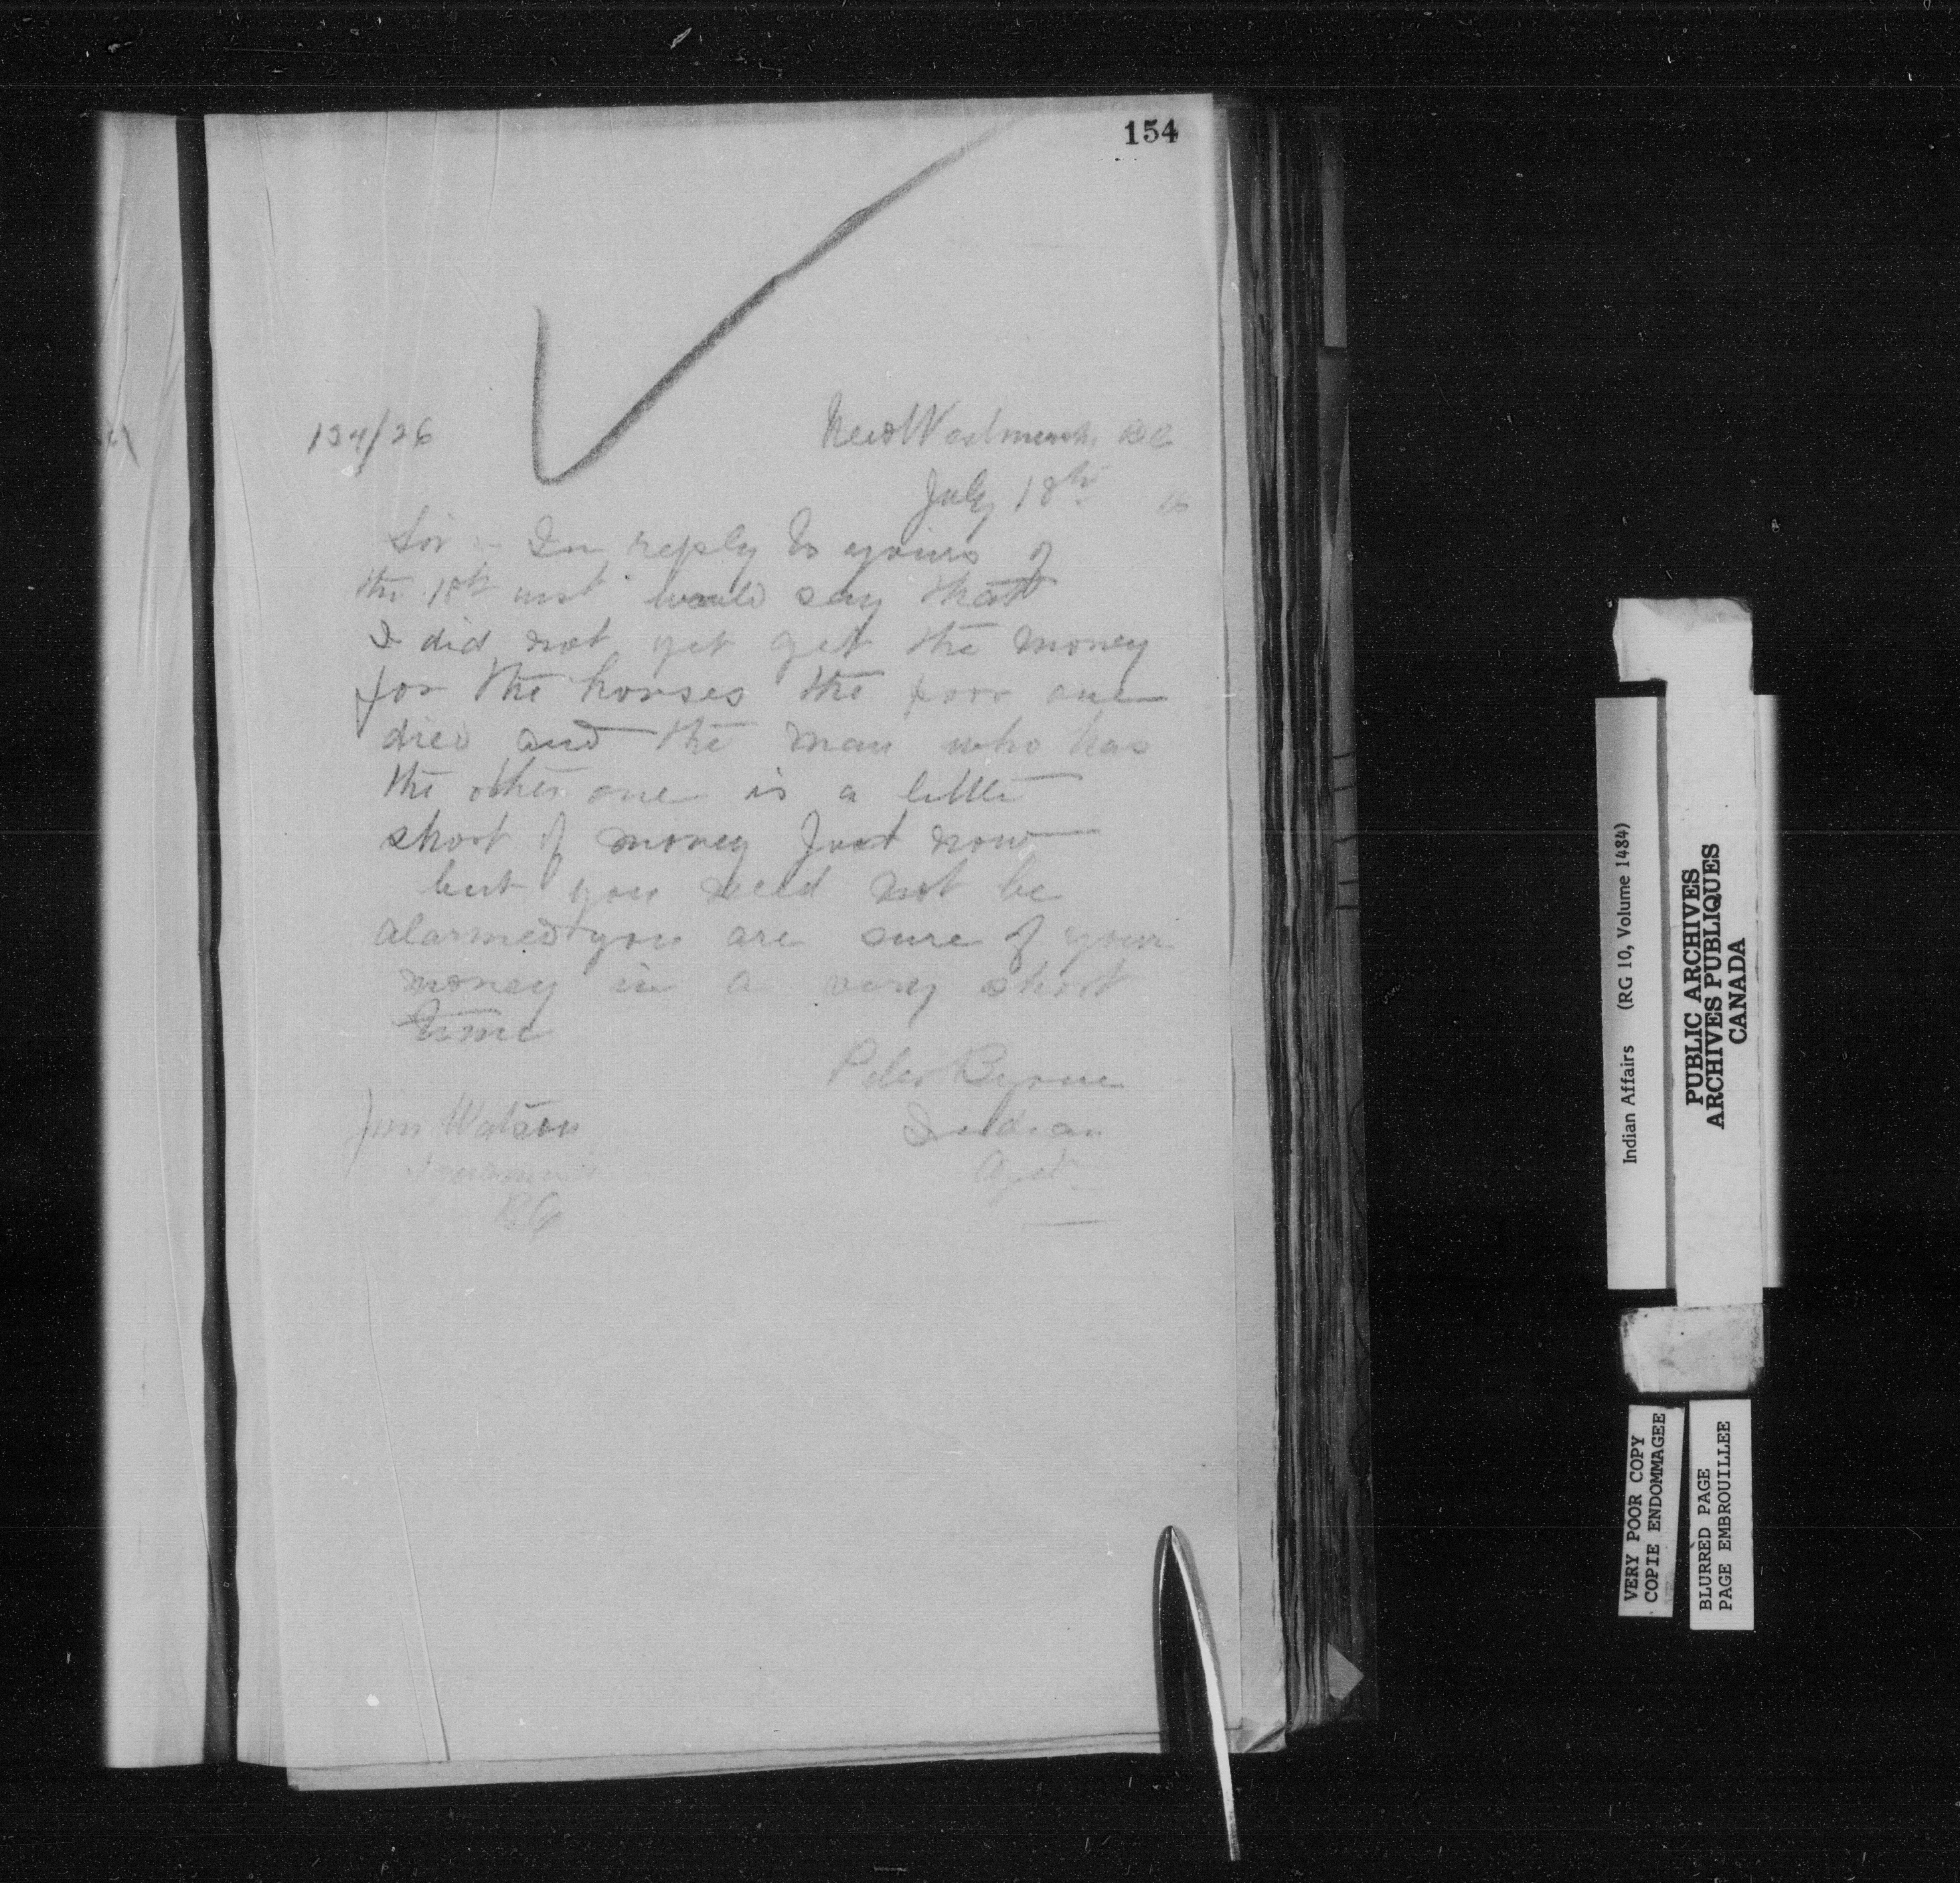 154
134/26
New Westminster BC
July 18th
Sir - In reply to yours of
the 18th inst would say that
I did not yet get the money
for the horses the poor one
died and the man who has
the other one is a little
short of money Just now
but you need not be
alarmed you are sure of your
money in a very short
time
Peter Byrne
Indian
Agt
Jim Watson
BC
Indian Affairs (RG 10, Volume 1484)
PUBLIC ARCHIVES
ARCHIVES PUBLIQUES
CANADA
VERY POOR COPY
COPIE ENDOMMAGEE
BLURRED PAGE
PAGE EMBROUILLEE